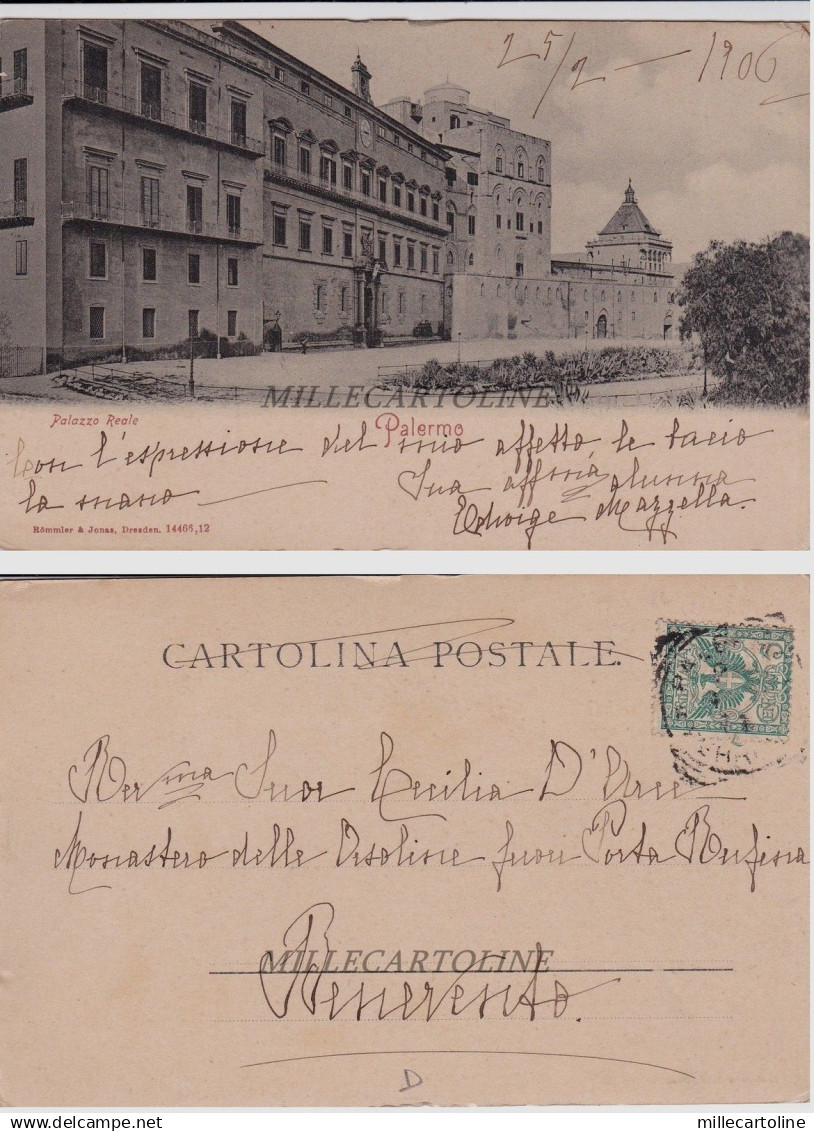 25/2 — 1906
MILLECARTOLINE
Palazzo Reale
Palermo
Con l'espressione del mio affetto, le bacio
la mano
Sua affma alunna
Edvige Mazzella.
Römmler & Jonas, Dresden. 14466,12
CARTOLINA POSTALE.
5
Rev.ma Suor Cecilia D'Arce
Monastero delle Orsoline fuori Porta Rufina
MILLECARTOLINE
Benevento
D
delcampe.net
millecartoline